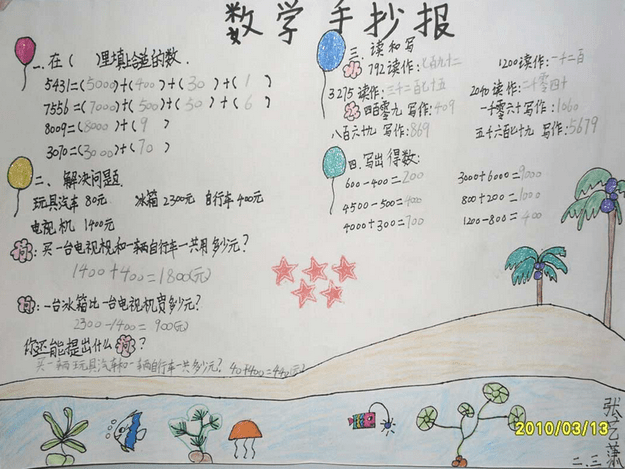 数学手抄报
一.在( )里填上合适的数.
5431=(5000)+(400)+(30)+(1)
7556=(7000)+(500)+(50)+(6)
8009=(8000)+(9)
3070=(3000)+(70)
二、解决问题.
玩具汽车 80元 冰箱 2300元 自行车 400元
电视机 1400元
问:买一台电视机和一辆自行车一共用多少元?
1400+400=1800(元)
问:一台冰箱比一台电视机贵多少元?
2300-1400=900(元)
你还能提出什么问?
买一辆玩具汽车和一辆自行车一共多少元?
三.读和写
792读作:七百九十二 1200读作:一千二百
3275读作:三千二百七十五 2040读作:二千零四十
四百零九 写作:409 一千零六十 写作:1060
八百六十九 写作:869 五千六百七十九 写作:5679
四.写出得数:
600-400=200 3000+6000=9000
4500-500=4000 800+200=1000
4000+300=700 1200-800=400
2010/03/13
二.三